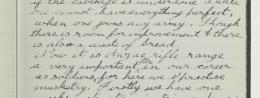 if the cabbage is underdone a little
one cannot have everything perfect,
when one joins any army. Though
there is room for improvement & there
is also a waste of bread.
Now it is Anzac rifle range
a very important in our career
as soldiers, for here we practise
musketry. Firstly we have one